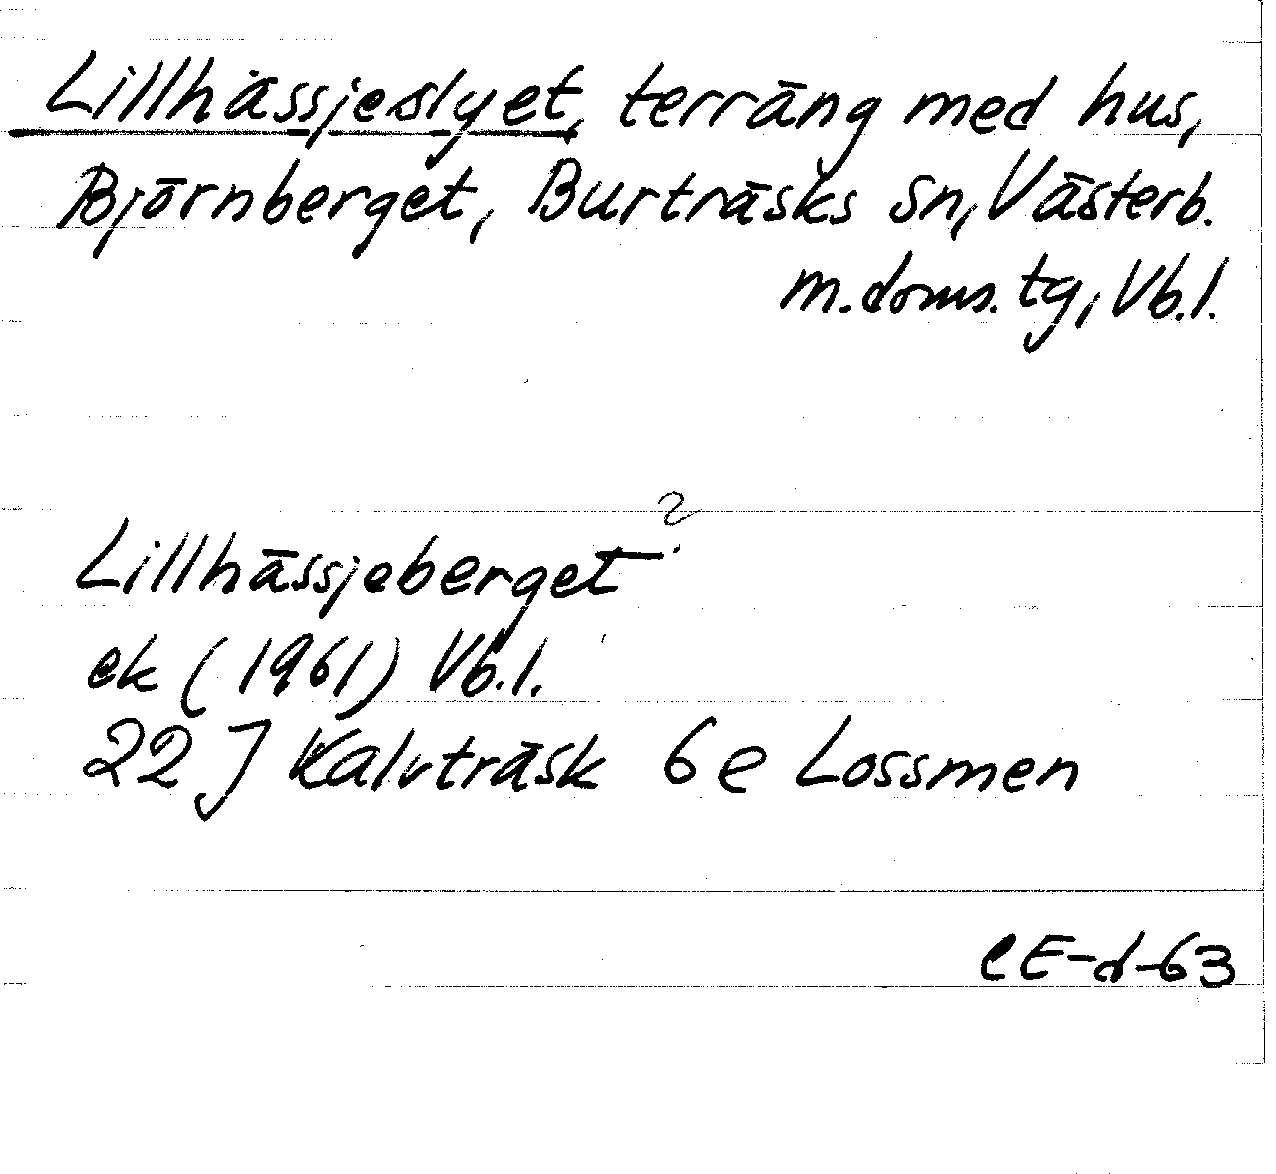 Lillhässjeslyet, terräng med hus,
Björnberget, Burträsks sn, Västerb.
m.doms.tg, Vb.l.
Lillhässjeberget ?
ek (1961) Vb.l.
22 J Kalvträsk 6 e Lossmen
CE-d-63